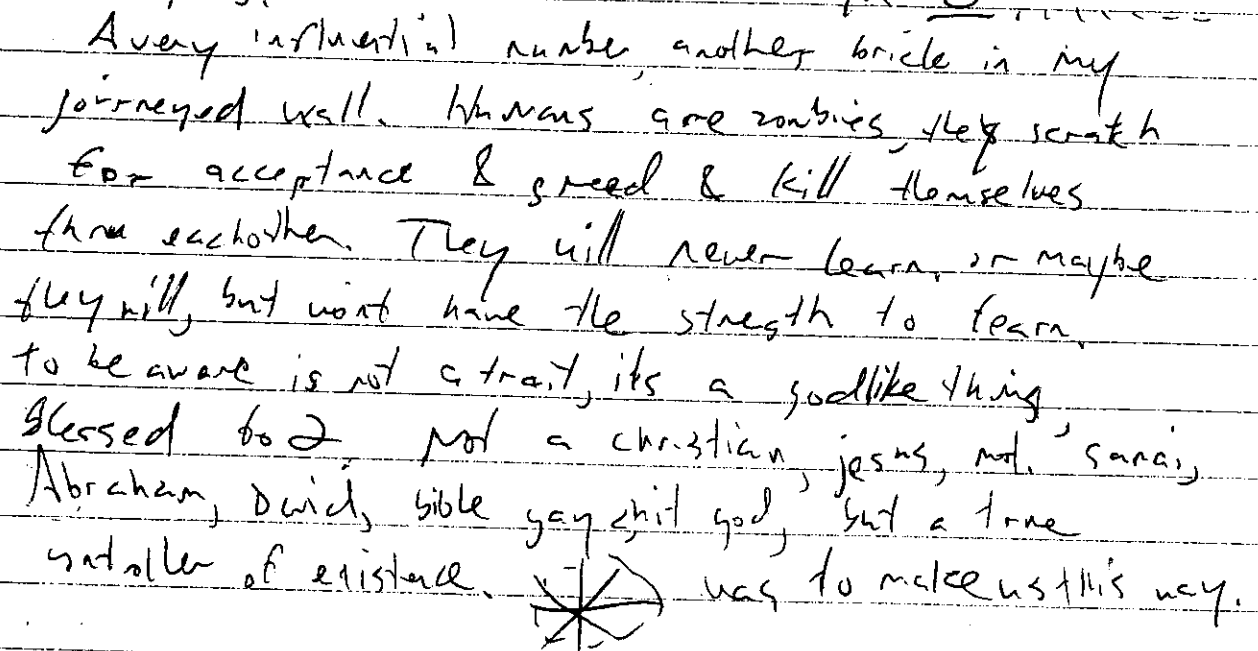 A very influential number, another brick in my
journeyed wall. Humans are zombies, they scratch
for acceptance & greed & kill themselves
thru eachother. They will never learn, or maybe
they will, but wont have the stregth to learn.
to be aware is not a trait, its a godlike thing,
Blessed to 2. Not a christian, jesus, not
Abraham, David, bible gay shit god, but a true
of existence. was to make us this way.